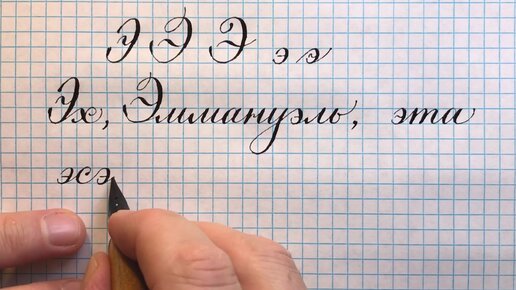 Э Э Э э э
Эх, Эммануэль, эта
эсэ